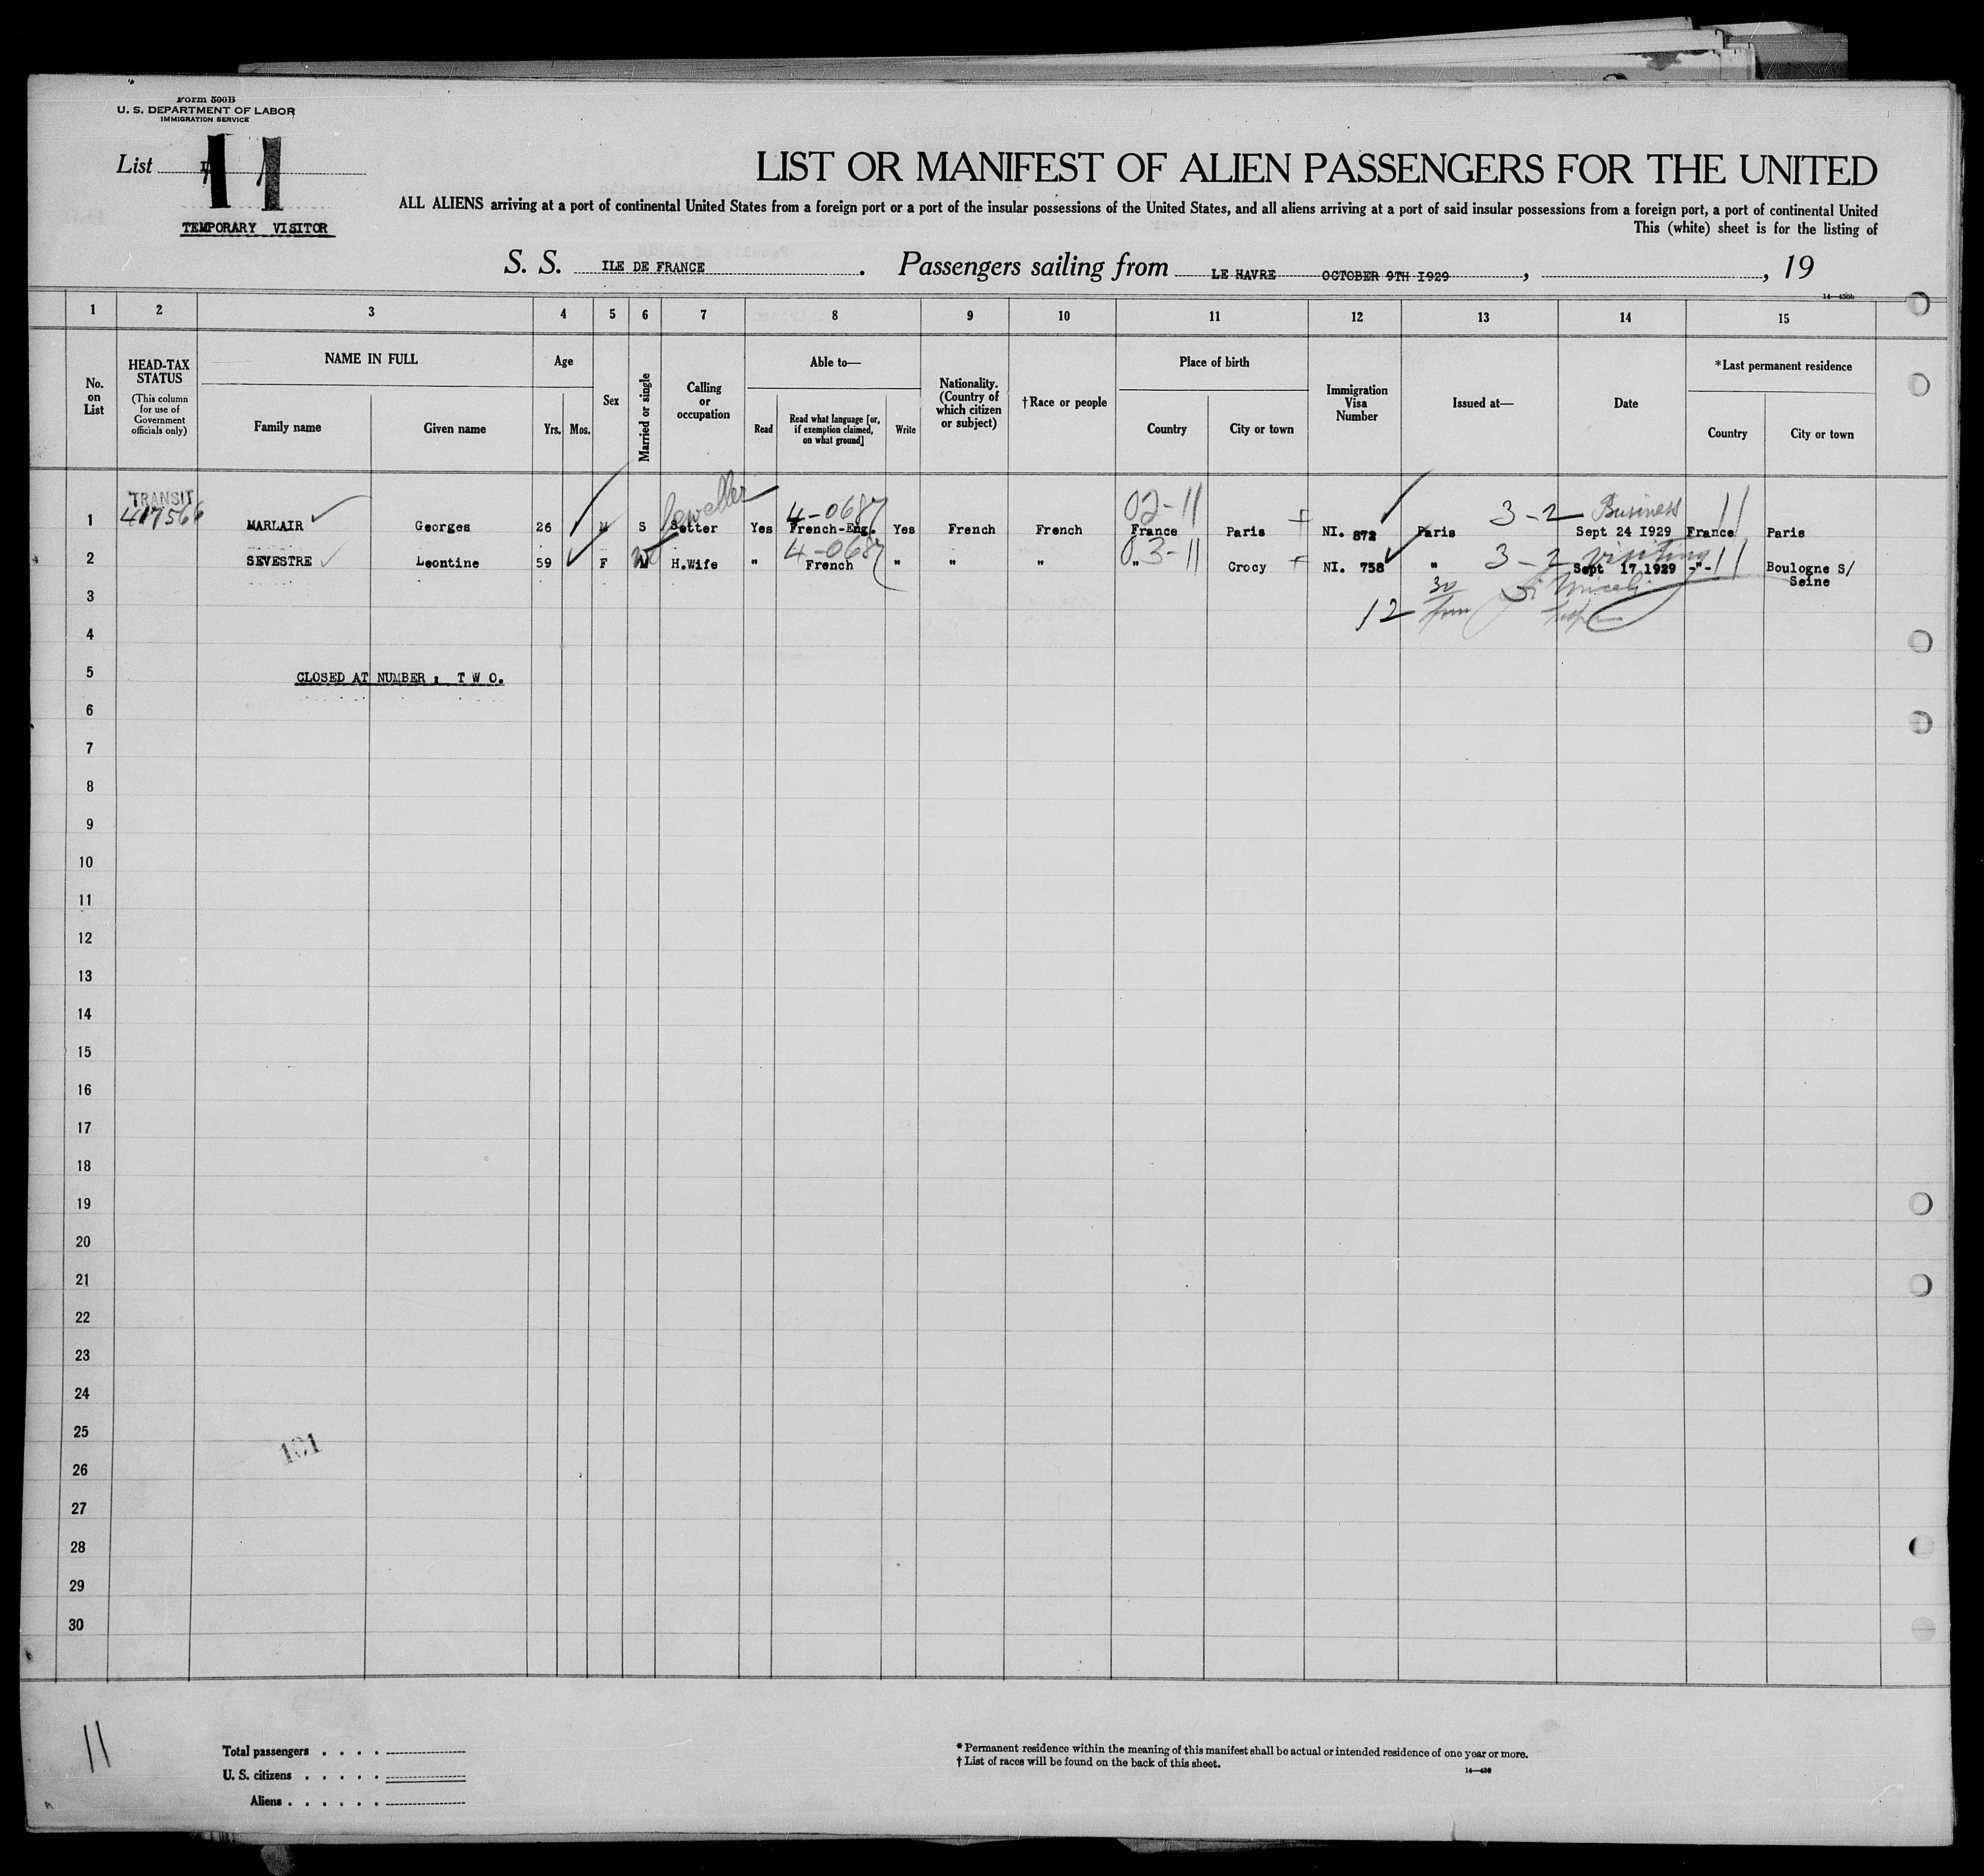 Form 500B
U. S. DEPARTMENT OF LABOR
IMMIGRATION SERVICE
List 11
TEMPORARY VISITOR
LIST OR MANIFEST OF ALIEN PASSENGERS FOR THE UNITED
ALL ALIENS arriving at a port of continental United States from a foreign port or a port of the insular possessions of the United States, and all aliens arriving at a port of said insular possessions from a foreign port, a port of continental United
This (white) sheet is for the listing of
S. S. ILE DE FRANCE. Passengers sailing from LE HAVRE OCTOBER 9TH I929, , 19
14—430b
1 2 3 4 5 6 7 8 9 10 11 12 13 14 15
No. on List
HEAD-TAX STATUS
(This column for use of Government officials only)
NAME IN FULL
Family name
Given name
Age
Yrs. Mos.
Sex
Married or single
Calling or occupation
Able to—
Read
Read what language [or, if exemption claimed, on what ground]
Write
Nationality. (Country of which citizen or subject)
†Race or people
Place of birth
Country
City or town
Immigration Visa Number
Issued at—
Date
*Last permanent residence
Country
City or town
TRANSIT Jeweller 4-0687 02-11 3-2 Business 11
1 417566 MARLAIR Georges 26 M S Setter Yes French-Eng. Yes French French France Paris NI. 872 Paris Sept 24 I929 France Paris
4-0687 03-11 3-2 visiting 11
2 SEVESTRE Leontine 59 F W H.Wife " French " " " " Crocy NI. 758 " Sept 17 1929 -"- Boulogne S/
Seine
3
12 30
4
5 CLOSED AT NUMBER : T W O.
6
7
8
9
10
11
12
13
14
15
16
17
18
19
20
21
22
23
24
25
101
26
27
28
29
30
11
Total passengers . . . .
U. S. citizens . . . . .
Aliens . . . . . .
* Permanent residence within the meaning of this manifest shall be actual or intended residence of one year or more.
† List of races will be found on the back of this sheet.
14—430